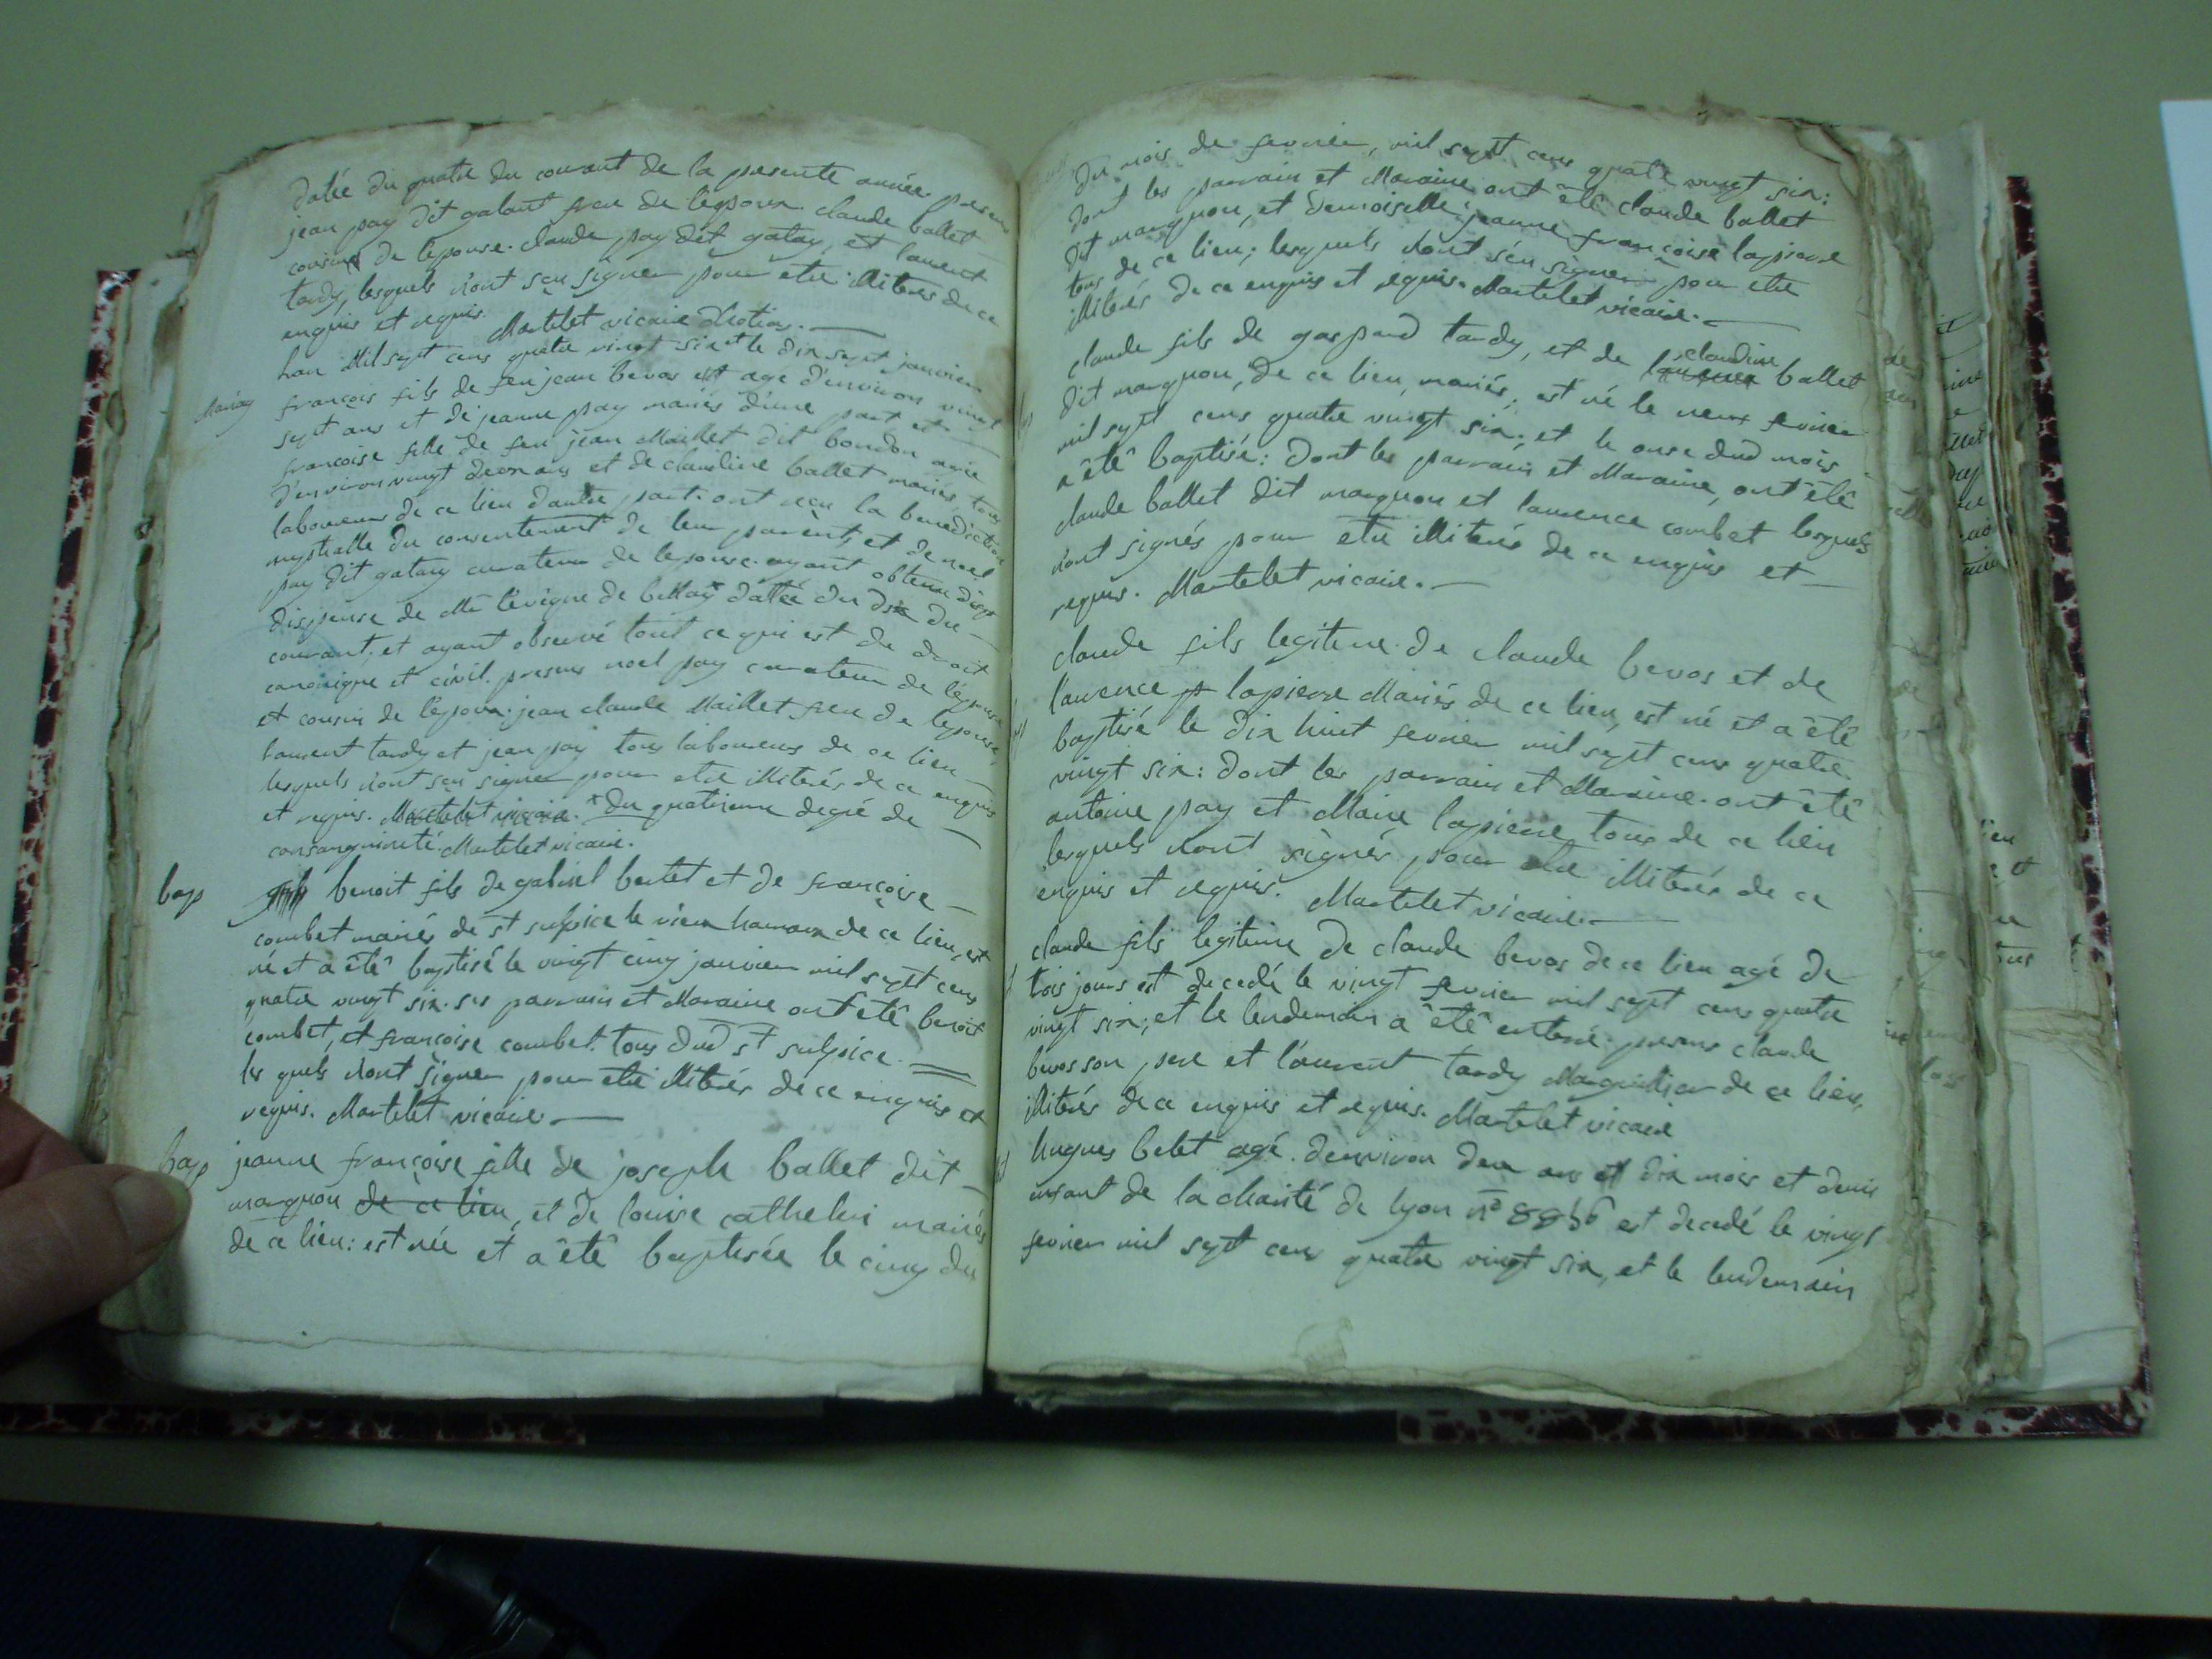 datée du quatre du courant de la presente année. presens
jean pay dit galant frere de l'epoux. claude ballet
cousin de l'epouse. claude pay dit gatay, et laurent
tardy, lesquels n'ont sçu signer pour etre illiterés de ce
enquis et requis. Martelet vicaire
lan Mil sept cens quatre vingt six et le dix sept janvier
mariage
françois fils de feu jean bevos et agé d'environ vingt
sept ans et de jeanne pay mariés d'une part et
françoise fille de feu jean Maillet dit bondon agée
d'environ vingt deux ans et de claudine ballet mariés, tous
laboureurs de ce lieu d'autre part. ont reçu la benediction
nuptialle du consentement de leur parents et de noel
pay dit gatay curateur de l'epouse. ayant obtenu
dispense de Mr l'evêque de bellay* dattée du dix du
courant, et ayant observé tout ce qui est de droit
canonique et civil. presens noel pay curateur de l'epouse
et cousin de l'epoux. jean claude Maillet frere de l'epouse,
laurent tardy et jean pay tous laboureurs de ce lieu
lesquels n'ont sçu signer pour etre illiterés de ce enquis
et requis. Martelet vicaire. * du quatrieme degré de
consanguinité. Martelet vicaire.
bap
benoit fils de gabriel bertet et de françoise
combet mariés de st sulpice le vieux hameau de ce lieu, est
né et a êtê baptisé le vingt cinq janvier mil sept cens
quatre vingt six. ses parrain et Maraine ont êtê benoit
combet, et françoise combet. tous dud st sulpice.
les quels n'ont signer pour etre illiterés de ce enquis et
requis. Martelet vicaire
bap
jeanne françoise fille de joseph ballet dit
marquon de ce lieu, et de louise cathelin mariés
de ce lieu: est née et a êtê baptisée le cinq du
du mois de fevrier, mil sept cens quatre vingt six:
dont les parrain et Maraine ont êtê claude ballet
dit marquon, et demoiselle jeanne françoise lapierre
tous de ce lieu; lesquels n'ont sçu signer pour etre
illiterés de ce enquis et requis. Martelet vicaire.
claude fils de gaspard tardy, et de claudine ballet
dit marquon, de ce lieu, mariés, est né le neuf fevrier
mil sept cens quatre vingt six; et le onze dud mois
a êtê baptisé: dont les parrain et Maraine, ont êtê
claude ballet dit marquon et laurence combet lesquels
n'ont signés pour etre illiterés de ce enquis et
requis. Martelet vicaire.
claude fils legitime de claude bevos et de
laurence lapierre Mariés de ce lieu, est né et a êtê
baptisé le dix huit fevrier mil sept cens quatre
vingt six: dont les parrain et Maraine. ont êtê
antoine pay et Marie lapierre, tous de ce lieu
lesquels n'ont signés pour etre illiterés de ce
enquis et requis. Martelet vicaire.
claude fils legitime de claude bevos de ce lieu agé de
trois jours est decedé le vingt fevrier mil sept cens quatre
vingt six; et le lendemain a êtê enterré. presens claude
bevos son pere et laurent tardy Marguillier de ce lieu,
illiterés de ce enquis et requis. Martelet vicaire
hugues belet agé d'environ deux ans et dix mois et demi
enfant de la charité de lyon n° 8856 est decedé le vingt
fevrier mil sept cens quatre vingt six, et le lendemain